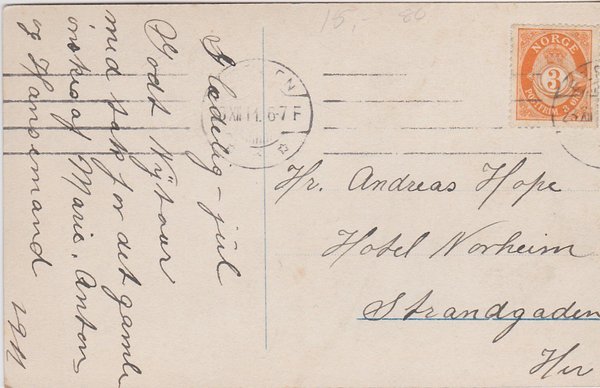 15,- 80
NORGE
3
POSTFRIM. 3 ØRE
XII 11. 6-7 F
Glædelig - jul
Godt Nytaar
med tak for det gamle
ønskes af Marie. Anton
og Hansemand
1911
Hr. Andreas Hope
Hotel Norheim
Strandgaden
Her